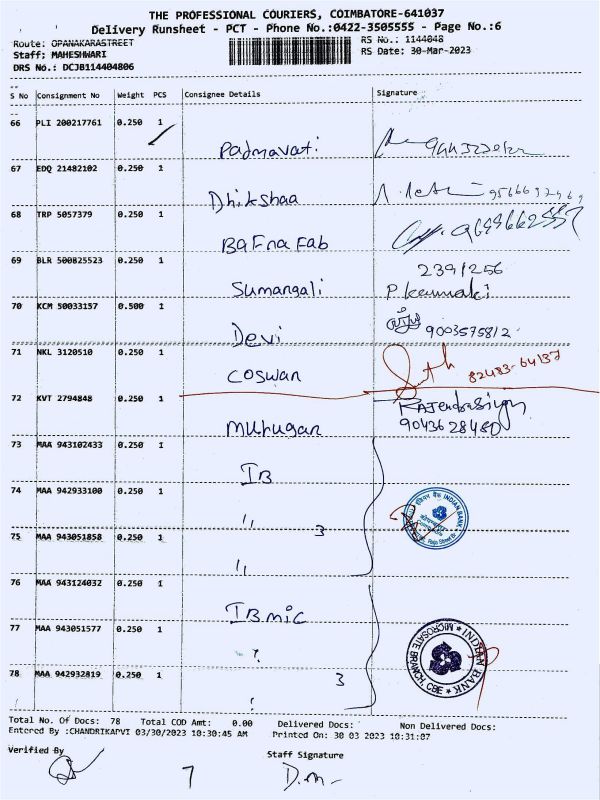 THE PROFESSIONAL COURIERS, COIMBATORE-641037
Delivery Runsheet - PCT - Phone No.:0422-3505555 - Page No.:6
Route: OPANAKARASTREET
RS No.: 1144048
Staff: MAHESHWARI
RS Date: 30-Mar-2023
DRS No.: DCJB114404806
S No Consignment No Weight PCS Consignee Details Signature
66 PLI 200217761 0.250 1
Padmavati
67 EDQ 21482102 0.250 1
Dhikshaa
68 TRP 5057379 0.250 1
Bafna Fab
69 BLR 500825523 0.250 1
239/256
Sumangali
70 KCM 50033157 0.500 1
Devi 9003575812
71 NKL 3120510 0.250 1
Coswan 82483-64137
72 KVT 2794848 0.250 1
Murugan 9043628480
73 MAA 943102433 0.250 1
IB
74 MAA 942933100 0.250 1
" 3
INDIAN BANK
75 MAA 943051858 0.250 1
"
76 MAA 943124032 0.250 1
IB.mic
77 MAA 943051577 0.250 1
INDIAN BANK
MICROSATE BRANCH, CBE
78 MAA 942932819 0.250 1
3
Total No. Of Docs: 78 Total COD Amt: 0.00 Delivered Docs: Non Delivered Docs:
Entered By :CHANDRIKAPVI 03/30/2023 10:30:45 AM Printed On: 30 03 2023 10:31:07
Verified By Staff Signature
7 D.m-